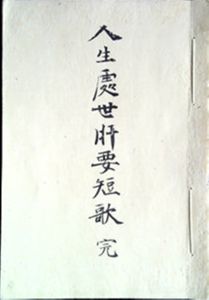 人生處世肝要短歌 完